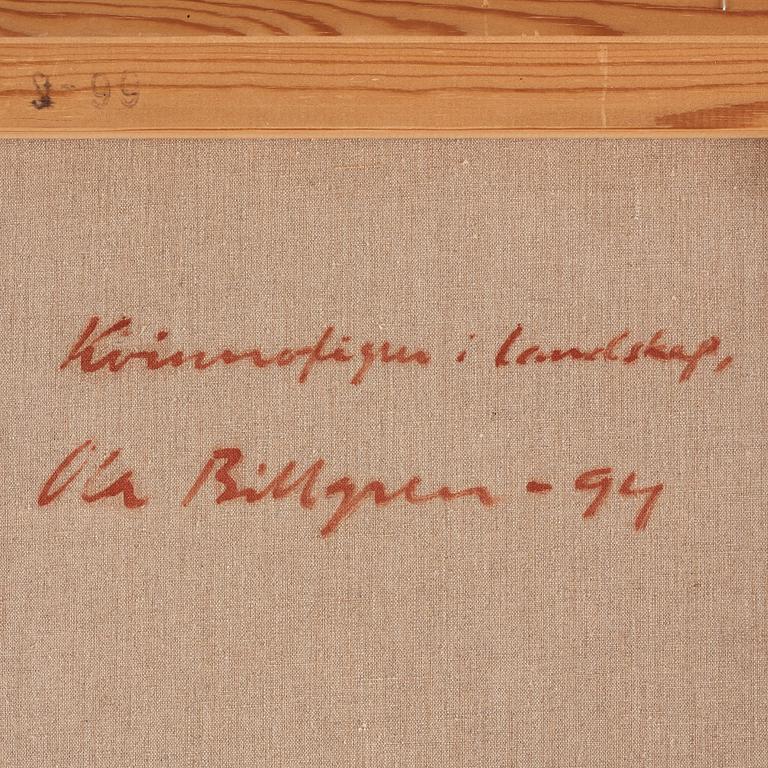 Kvinnofigur i landskap,
Ola Billgren - 94